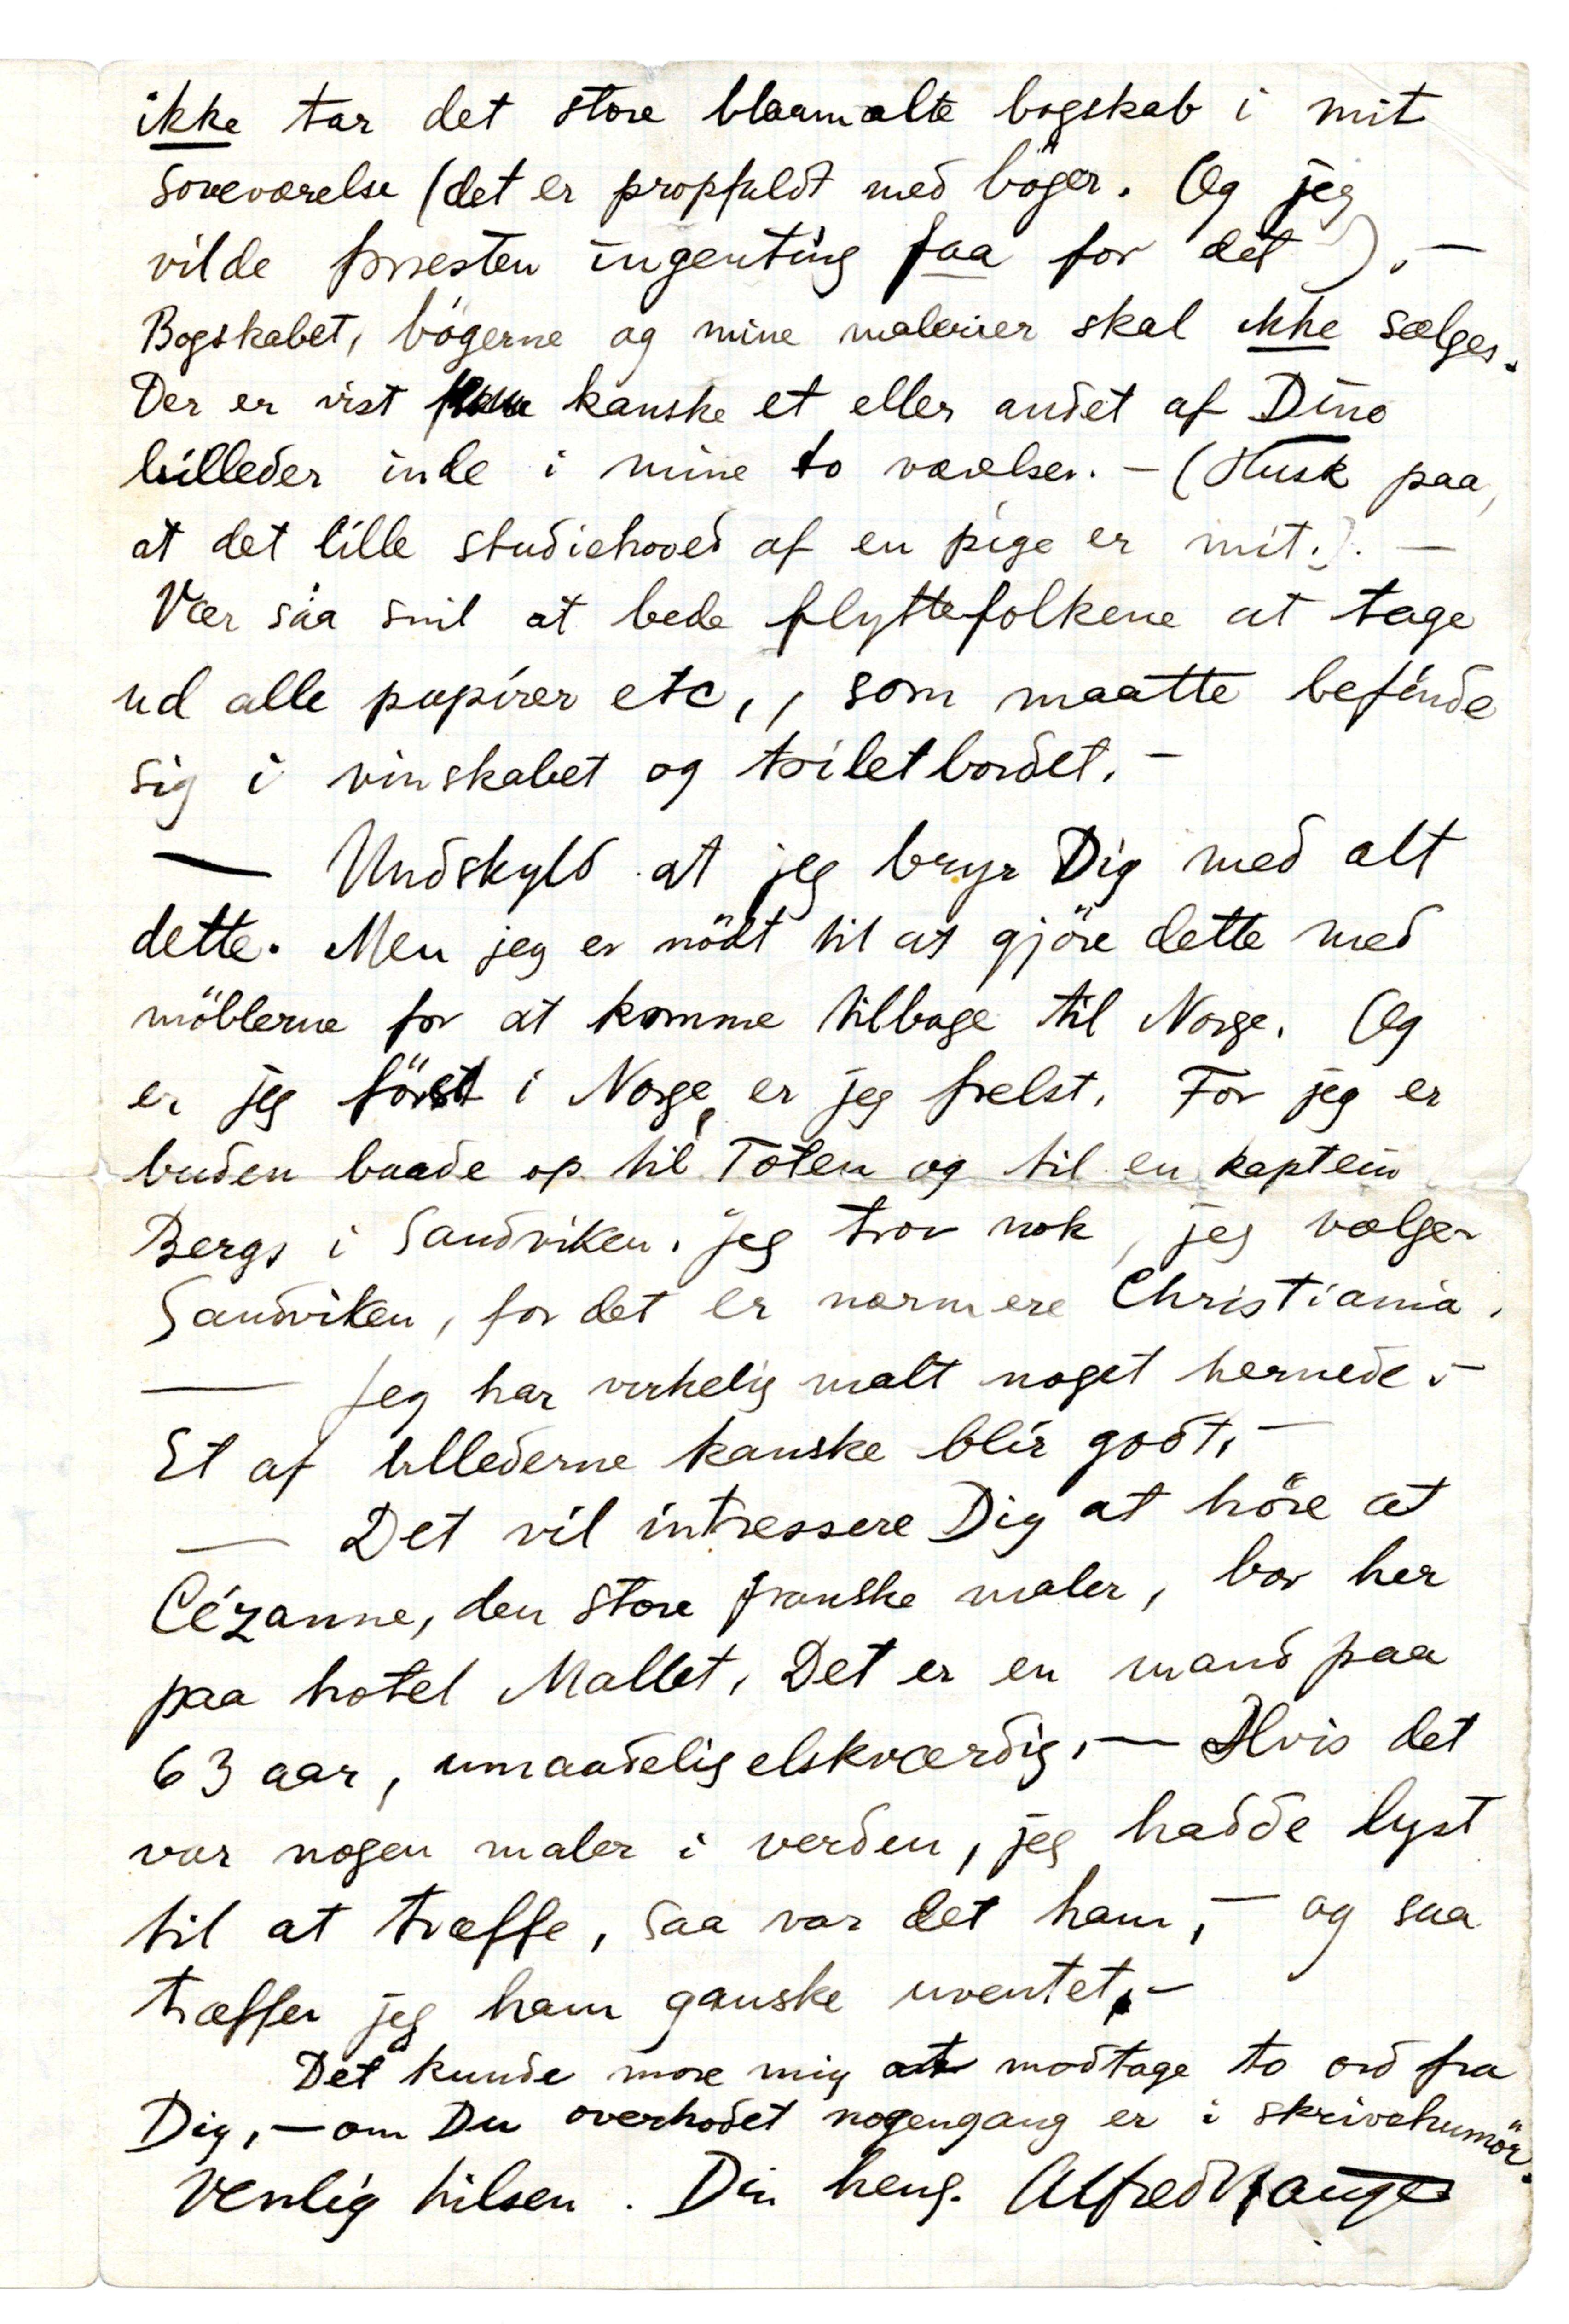 ikke tar det store blaamalte bogskab i mit
soveværelse (det er propfuldt med böger. Og jeg
vilde forresten ingenting faa for det). —
Bogskabet, bögerne og mine malerier skal ikke sælges.
Der er vist kanske et eller andet af Dine
billeder inde i mine to værelser. — (Husk paa,
at det lille studiehoved af en pige er mit.). —
Vær saa snil at bede flyttefolkene at tage
ud alle papirer etc,, som maatte befinde
sig i vinskabet og toiletbordet. —
— Undskyld at jeg bryr Dig med alt
dette. Men jeg er nödt til at gjöre dette med
möblerne for at komme tilbage til Norge. Og
er jeg först i Norge, er jeg frelst. For jeg er
buden baade op til Toten og til en kaptein
Bergs i Sandviken. Jeg tror nok, jeg vælger
Sandviken, for det er nærmere Christiania.
— Jeg har virkelig malt noget hernede. —
Et af billederne kanske blir godt. —
— Det vil intressere Dig at höre at
Cézanne, den store franske maler, bor her
paa hotel Mallet. Det er en mand paa
63 aar, umaadelig elskværdig. — Hvis det
var nogen maler i verden, jeg hadde lyst
til at træffe, saa var det ham, — og saa
træffer jeg ham ganske uventet. —
Det kunde more mig at modtage to ord fra
Dig, — om Du overhodet nogengang er i skrivehumör.
Venlig hilsen. Din heng. Alfred Hauge